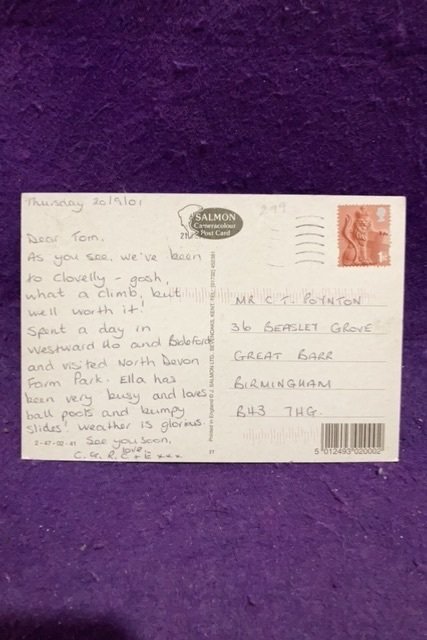 Thursday 20/9/01
Dear Tom,
As you see, we've been
to Clovelly – gosh,
what a climb, but
well worth it!
Spent a day in
Westward Ho and Bideford
and visited North Devon
Farm Park. Ella has
been very busy and loves
ball pools and bumpy
slides! Weather is glorious.
See you soon,
love
C. G. R. C + E xxx
2-47-02-41
SALMON
Cameracolour
Post Card
Printed in England © J. SALMON LTD., SEVENOAKS, KENT. TEL: (01732) 452381
1st
MR C. T. POYNTON
36 BEASLEY GROVE
GREAT BARR
BIRMINGHAM
B43 7HG.
5 012493 020002